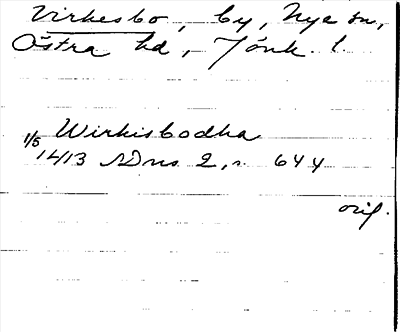 Virkesbo, by, Nye sn,
Östra hd, Jönk. l.
Wirkisbodha
1/5 1413 SDns 2, s. 644
orig.